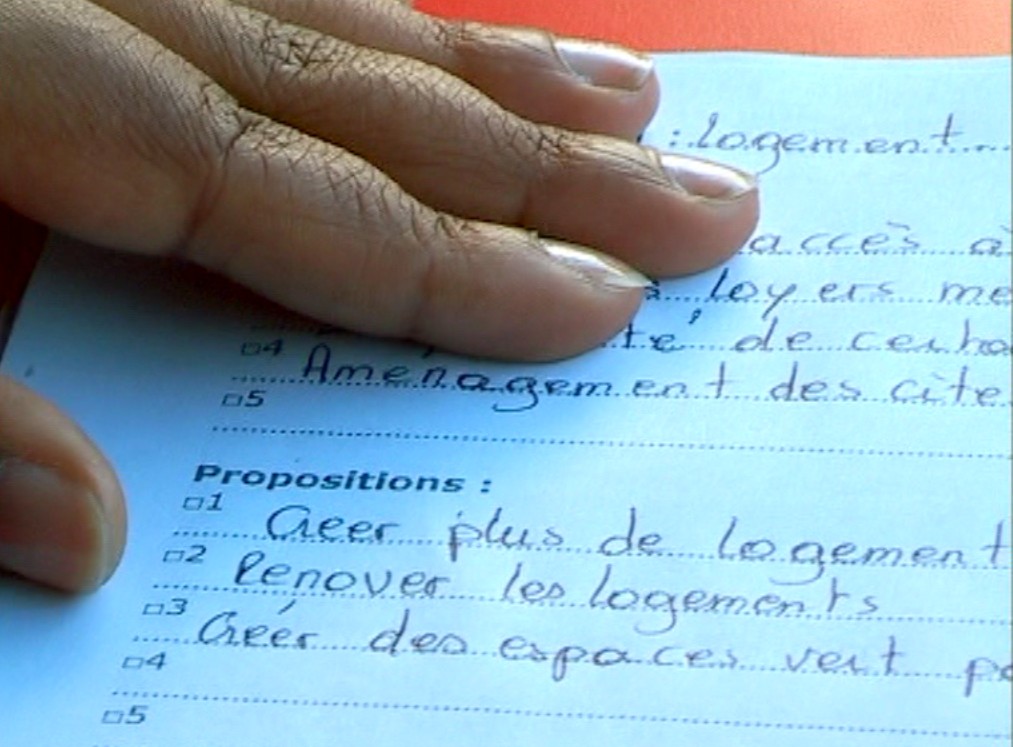 : logement
accès à
loyers
té de
□4 Aménagement des cite
□5
Propositions :
□1 Créer plus de logement
□2 Rénover les logements
□3 Créer des espaces vert
□4
□5